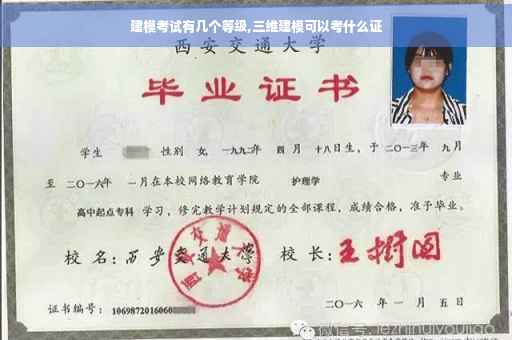 建模考试有几个等级,三维建模可以考什么证
西安交通大学
毕业证书
学生 性别 女, 一九九二年 四月 十八日生，于二〇一三年 九月
至 二〇一六年 一月在本校网络教育学院 护理学 专业
高中起点专科 学习，修完教学计划规定的全部课程，成绩合格，准予毕业。
校名：西安交通大学 校长：王树国
西安交通大学
证书编号：1069872016060
二〇一六年 一月五日
微信号: jezhihuiyoujiao